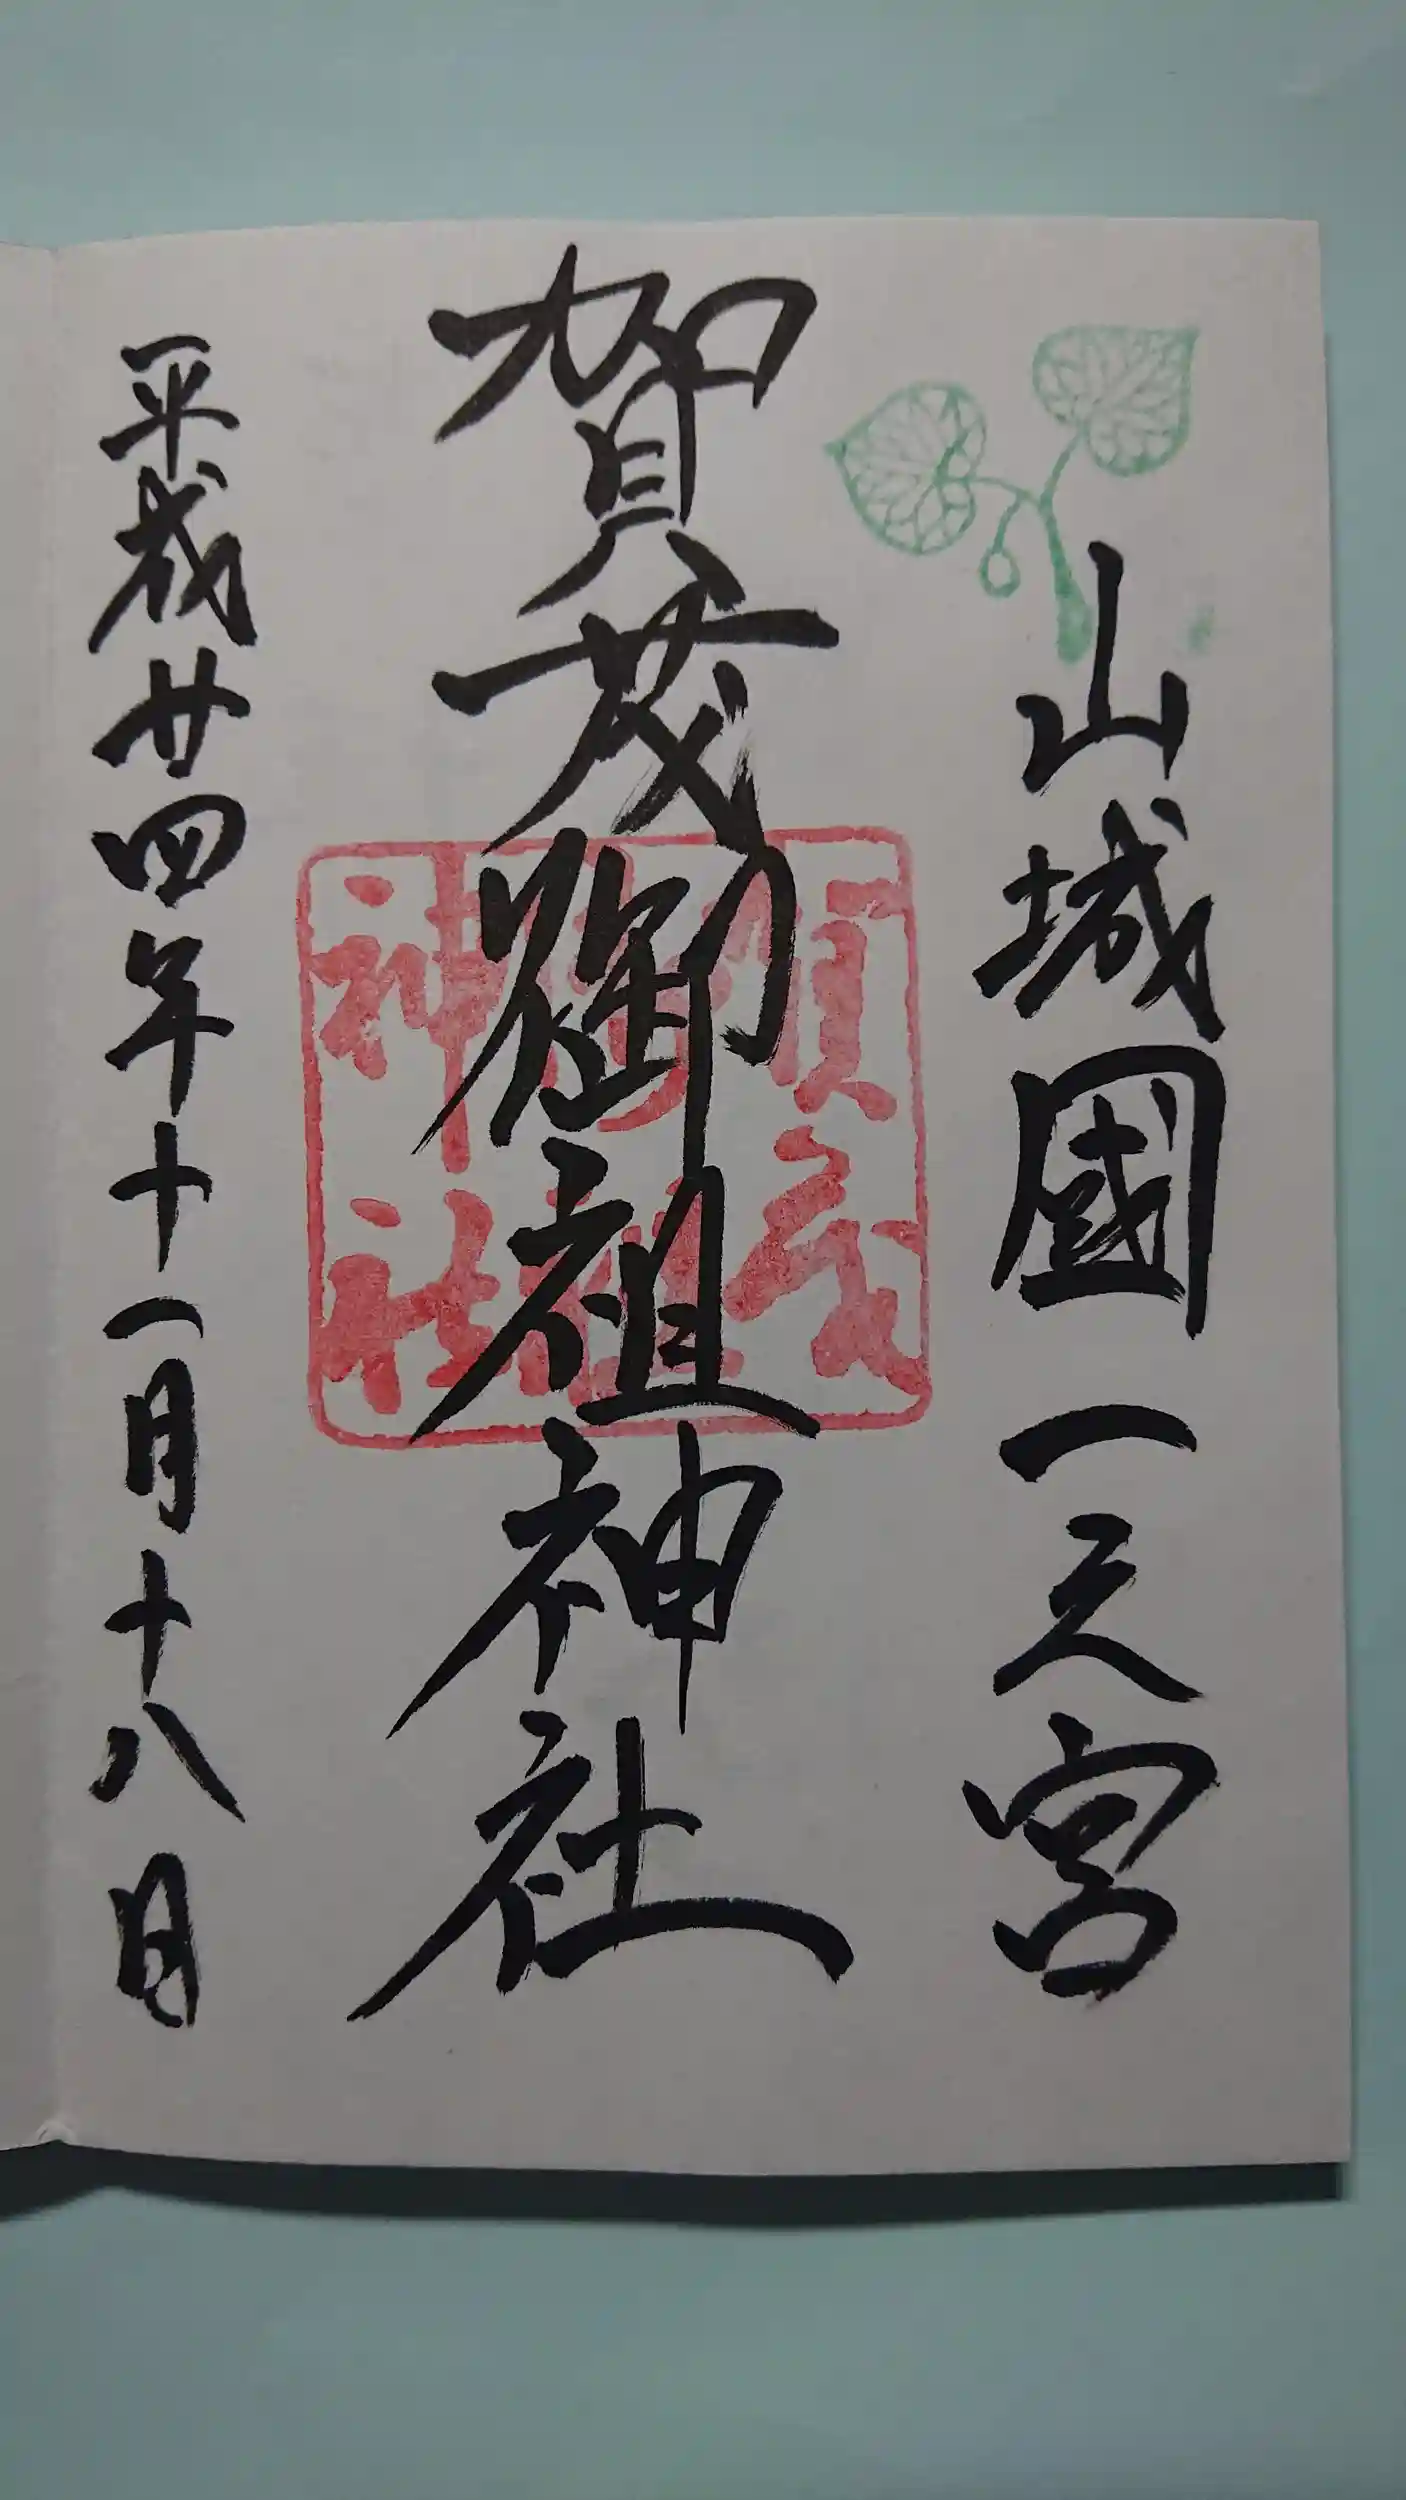 山城國一之宮
賀茂御祖神社
平成廿四年十一月十八日
賀茂
御祖
神社